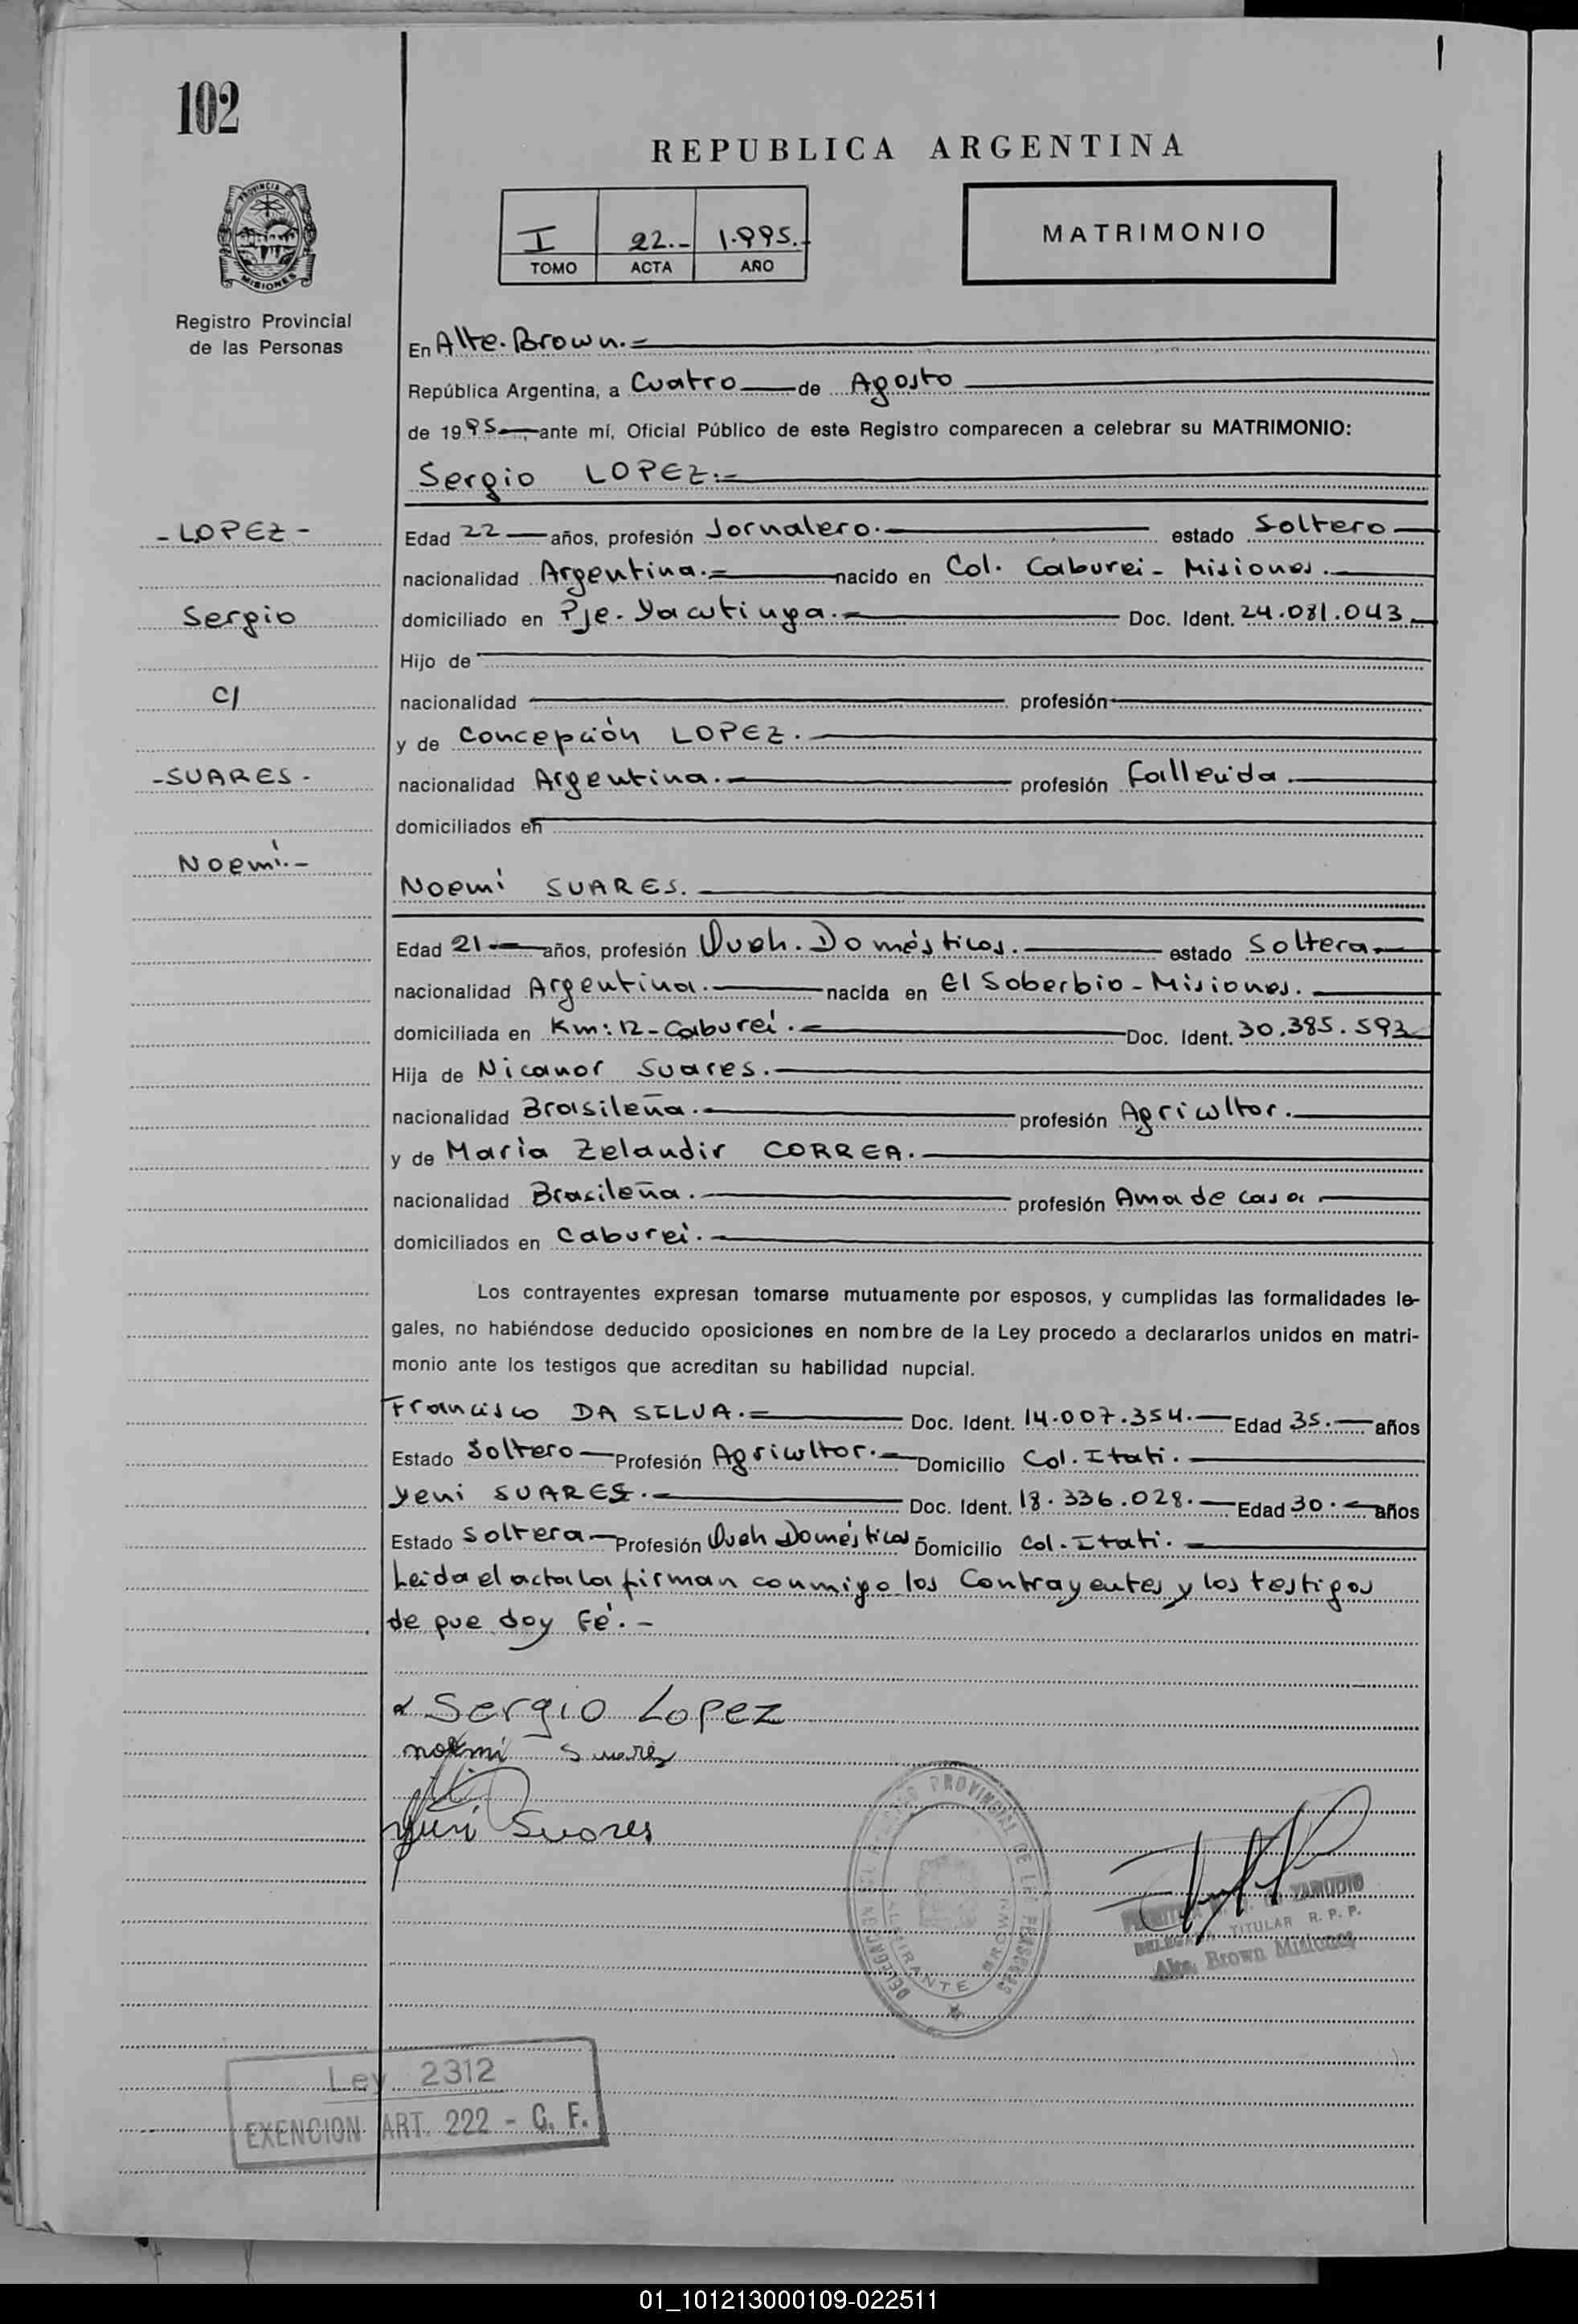 102
REPUBLICA ARGENTINA
PROVINCIA DE
MISIONES
I 22.- 1.995.-
TOMO ACTA AÑO
MATRIMONIO
Registro Provincial
de las Personas
En Alte. Brown.=
República Argentina, a Cuatro de Agosto
de 1995 , ante mí, Oficial Público de este Registro comparecen a celebrar su MATRIMONIO:
Sergio LOPEZ.=
- LOPEZ -
Edad 22 años, profesión Jornalero. estado Soltero
nacionalidad Argentina.= nacido en Col. Caburei - Misiones.
Sergio
domiciliado en Pje. Yacutinga.= Doc. Ident. 24.081.043
Hijo de
C/
nacionalidad profesión
y de Concepción LOPEZ.
-SUARES-
nacionalidad Argentina. profesión Fallecida.
domiciliados en
Noemí.-
Noemí SUARES.
Edad 21 años, profesión Queh. Domésticos. estado Soltera
nacionalidad Argentina. nacida en El Soberbio - Misiones.
domiciliada en Km: 12 - Caburei. Doc. Ident. 30.385.593
Hija de Nicanor Suares.
nacionalidad Brasileña. profesión Agricultor.
y de María Zelandir CORREA.
nacionalidad Brasileña. profesión Ama de casa
domiciliados en Caburei.
Los contrayentes expresan tomarse mutuamente por esposos, y cumplidas las formalidades le-
gales, no habiéndose deducido oposiciones en nombre de la Ley procedo a declararlos unidos en matri-
monio ante los testigos que acreditan su habilidad nupcial.
Francisco DA SILVA.= Doc. Ident. 14.007.354. Edad 35. años
Estado Soltero Profesión Agricultor. Domicilio Col. Itati.
Yeni SUARES. Doc. Ident. 18.336.028. Edad 30. años
Estado Soltera Profesión Queh Domésticos Domicilio Col. Itati.
Leida el acta la firman conmigo los Contrayentes y los testigos
de que doy Fé.-
Sergio Lopez
noemi Suares
Yeni Suares
DELEGACION DEL REGISTRO PROVINCIAL DE LAS PERSONAS
ALMIRANTE BROWN
DE ZAMUDIO
DELEGADA TITULAR R. P. P.
Alte. Brown Misiones
Ley 2312
EXENCION ART. 222 - C. F.
01_101213000109-022511